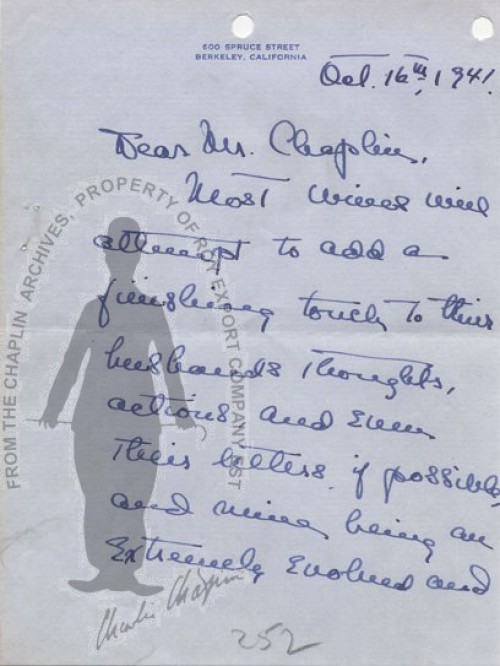 600 SPRUCE STREET
BERKELEY, CALIFORNIA
Oct. 16th, 1941.
Dear Mr. Chaplin,
Most wives will
attempt to add a
finishing touch to their
husbands thoughts,
actions and even
their letters if possible,
and mine being an
Extremely Evolved and
252
FROM THE CHAPLIN ARCHIVES, PROPERTY OF ROY EXPORT COMPANY EST
Charlie Chaplin